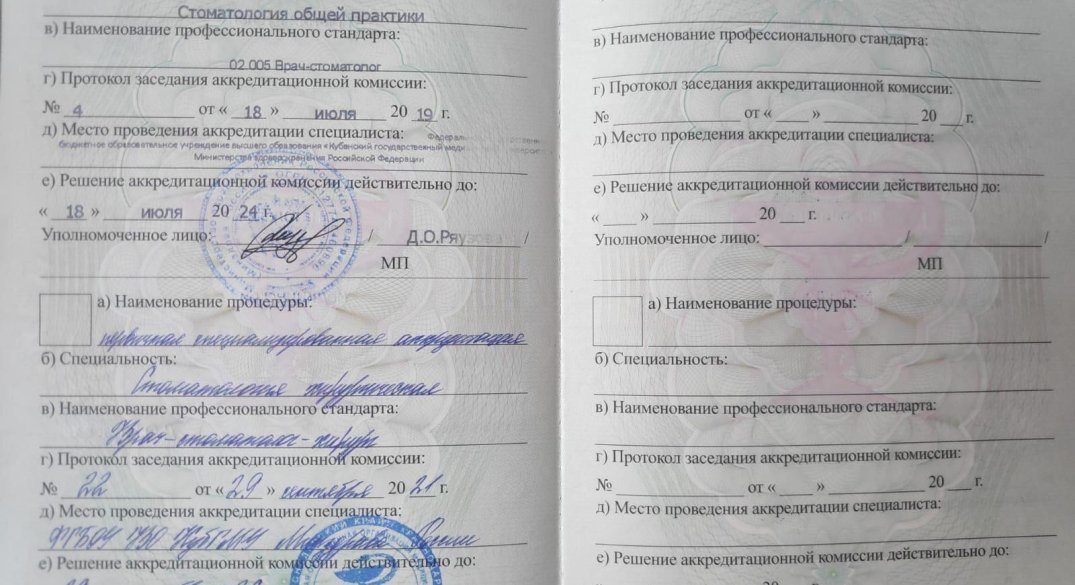 Стоматология общей практики
в) Наименование профессионального стандарта:
02.005 Врач-стоматолог
г) Протокол заседания аккредитационной комиссии:
№ 4 от « 18 » июля 20 19 г.
д) Место проведения аккредитации специалиста:
бюджетное образовательное учреждение высшего образования «Кубанский государственный
Министерства здравоохранения Российской Федерации
е) Решение аккредитационной комиссии действительно до:
« 18 » июля 20 24 г.
Уполномоченное лицо: / Д.О. /
МП
а) Наименование процедуры:
первичная специализированная аккредитация
б) Специальность:
Стоматология хирургическая
в) Наименование профессионального стандарта:
Врач-стоматолог-хирург
г) Протокол заседания аккредитационной комиссии:
№ 22 от « 29 » сентября 20 21 г.
д) Место проведения аккредитации специалиста:
ФГБОУ ВО КубГМУ Минздрава России
е) Решение аккредитационной комиссии действительно до:
в) Наименование профессионального стандарта:
г) Протокол заседания аккредитационной комиссии:
№ от « » 20 г.
д) Место проведения аккредитации специалиста:
е) Решение аккредитационной комиссии действительно до:
« » 20 г.
Уполномоченное лицо: / /
МП
а) Наименование процедуры:
б) Специальность:
в) Наименование профессионального стандарта:
г) Протокол заседания аккредитационной комиссии:
№ от « » 20 г.
д) Место проведения аккредитации специалиста:
е) Решение аккредитационной комиссии действительно до: